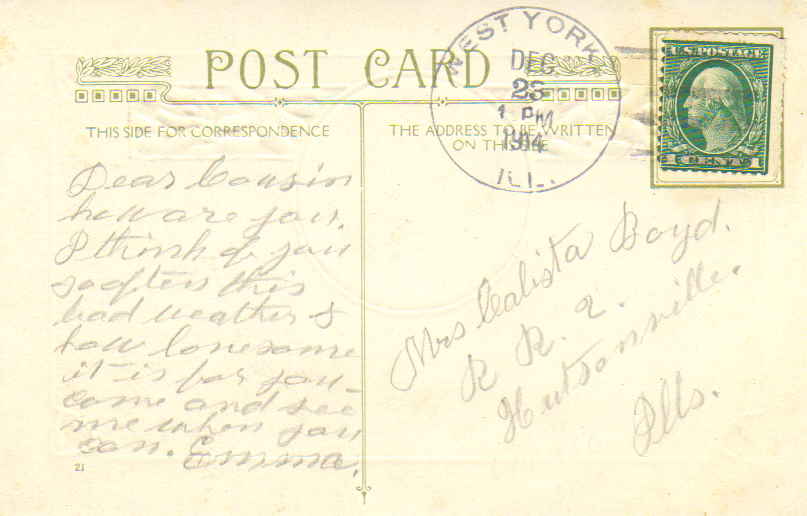 POST CARD
WEST YORK
DEC
23
1 PM
1914
ILL.
U.S. POSTAGE
THIS SIDE FOR CORRESPONDENCE
THE ADDRESS TO BE WRITTEN
ON THIS SIDE
Dear Cousin
how are you.
I think of you
so often this
bad weather &
how lonesome
it is for you -
come and see
me when you
can. Emma.
Mrs Calista Boyd.
R R. 2.
Hutsonville.
Ills.
21